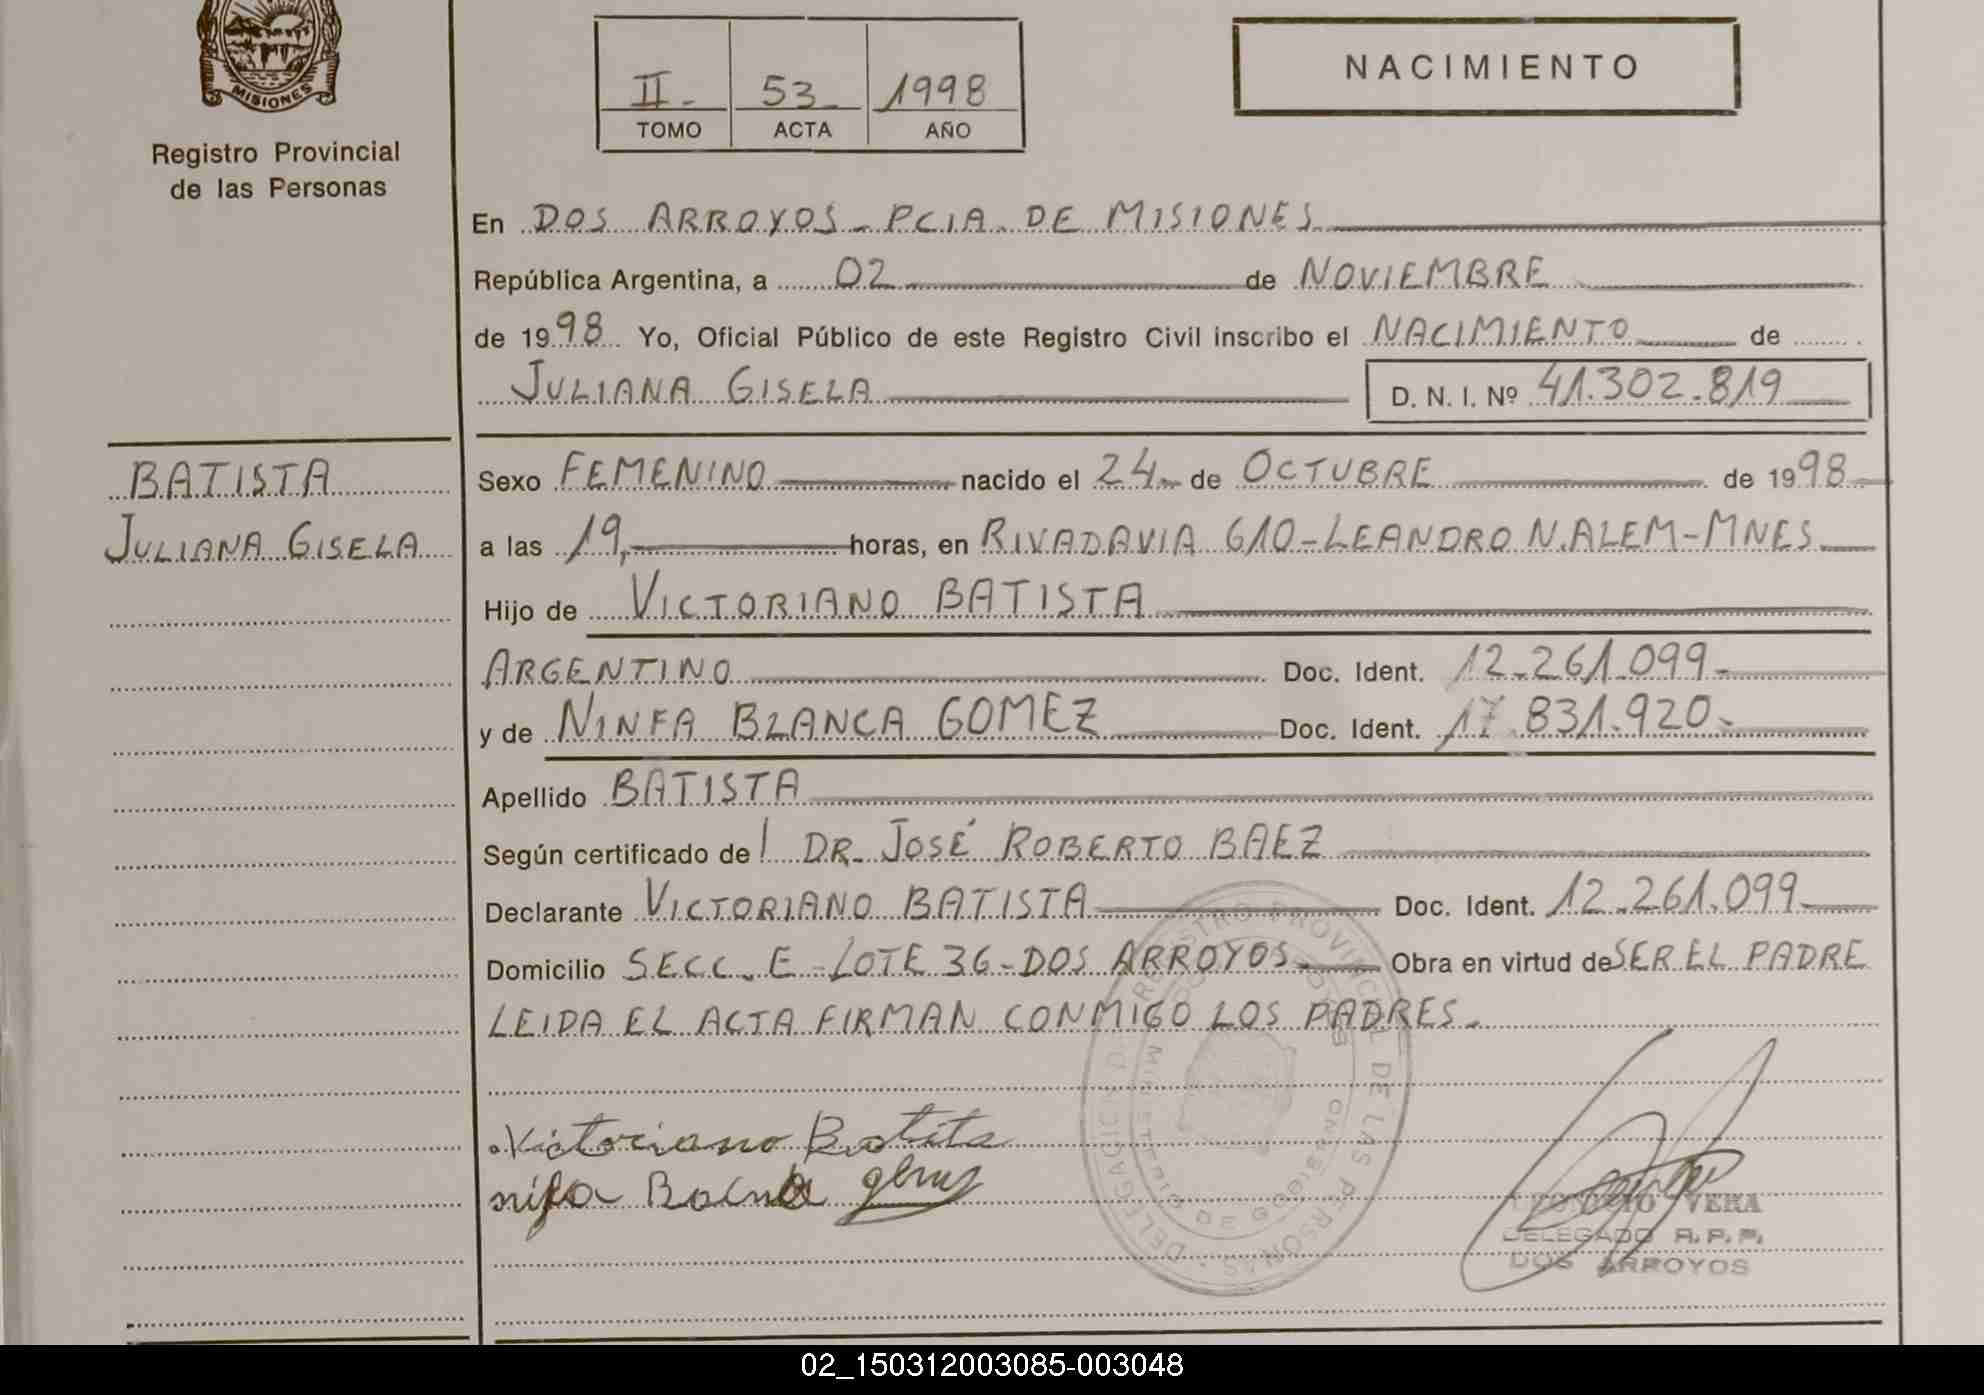 MISIONES
Registro Provincial
de las Personas
II- 53 1998
TOMO ACTA AÑO
NACIMIENTO
En DOS ARROYOS - PCIA. DE MISIONES
República Argentina, a 02 de NOVIEMBRE
de 1998 Yo, Oficial Público de este Registro Civil inscribo el NACIMIENTO de
JULIANA GISELA D. N. I. Nº 41.302.819
BATISTA
JULIANA GISELA
Sexo FEMENINO nacido el 24 de OCTUBRE de 1998
a las 19, horas, en RIVADAVIA 610-LEANDRO N. ALEM-MNES
Hijo de VICTORIANO BATISTA
ARGENTINO Doc. Ident. 12.261.099-
y de NINFA BLANCA GOMEZ Doc. Ident. 17.831.920-
Apellido BATISTA
Según certificado de l DR. JOSÉ ROBERTO BAEZ
Declarante VICTORIANO BATISTA Doc. Ident. 12.261.099
Domicilio SECC. E - LOTE 36 - DOS ARROYOS Obra en virtud de SER EL PADRE
LEIDA EL ACTA FIRMAN CONMIGO LOS PADRES.
Victoriano
VERA
DELEGADO R.P.P.
DOS ARROYOS
REGISTRO PROVINCIAL DE LAS PERSONAS
MINISTERIO DE GOBIERNO
02_150312003085-003048